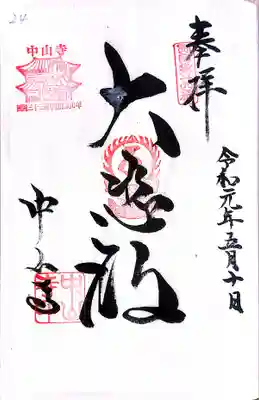 奉拝
令和元年五月十日
大悲殿
中山寺
中山寺
24